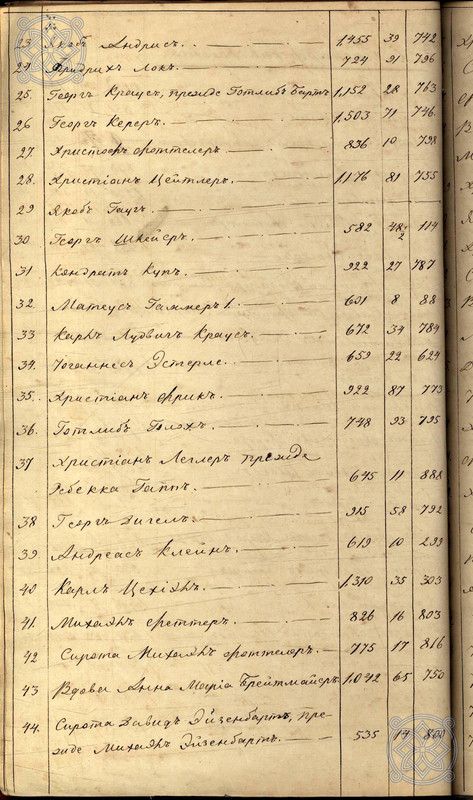 23. Якобъ Андрисъ. 1,455 39 742
24. Фридрихъ Локъ. 724 91 796
25. Георгъ Краусъ, прежде Готлибъ Бартъ 1,152 28 763
26 Георгъ Кереръ. 1,503 71 746
27. Христофъ 836 10 798
28. Христіанъ Цейтлеръ. 1176 81 755
29 Якобъ Гаугъ.
30 Георгъ Шнейеръ. 582 48 2 119
31 Кондратъ Купъ. 922 27 787
32. Матеусъ Гаммеръ 1. 601 8 88
33 Карлъ Лудвигъ Краусъ. 672 34 784
34. Іоганнесъ Эстерле. 659 22 624
35. Христіанъ Фрикъ. 922 87 773
36. Готлибъ Плохъ. 748 93 795
37 Христіанъ Леглеръ прежде
Ребекка Гаппъ. 645 11 888
38 Георгъ Дигель. 915 58 792
39 Андреасъ Клейнъ. 619 10 299
40 Карлъ Цехіянъ. 1,310 35 303
41. Михаэлъ Феттеръ. 826 16 803
42 Сирота Михаэлъ 775 17 816
43 Вдова Анна Маріа Брейтмайеръ 1,042 65 750
44. Сирота Давидъ Эйзенбартъ, пре-
жде Михаэлъ Эйзенбартъ. 535 14 800